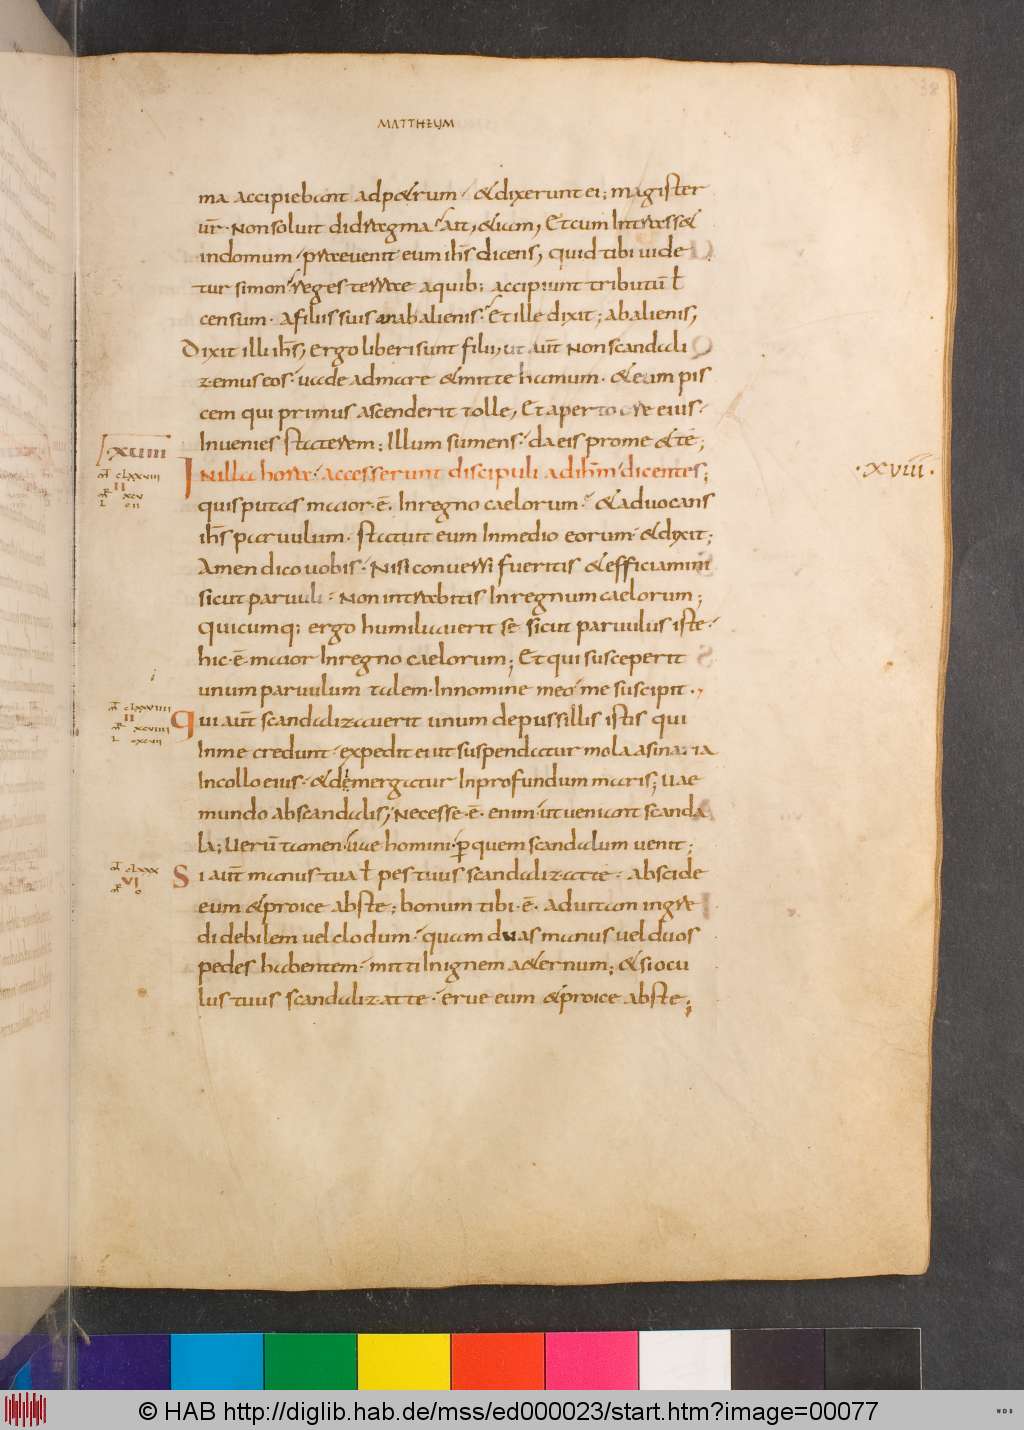 38
MATTHEUM
ma accipiebant adp&rum· &dixerunt ei; magister
ur̄· Non soluit didragma· ait, &iam, Et cum Intrass&
indomum· praeuenit eum ih̄s dicens, quid tibi uide
tur simon· reges terrae aquib; accipiunt tributū ł
censum· Afiliis suis anabalienis· Et ille dixit; abalienis,
Dixit illi ih̄s, Ergo liberi sunt filii, ut aut̄ Non scandali
zemus eos· uade admare &mitte hamum· &eum pis
cem qui primus ascenderit tolle, Et aperto ore eius·
Inuenies staterem; Illum sumens· da eis prome &te;
·xuiii
INilla hora· accesserunt discipuli adih̄m dicentes;
·xviii·
m̄ clxxviii
II
quis putas maior·ē· Inregno caelorum· &aduocans
ih̄s paruulum· statuit eum Inmedio eorum· &dixit;
Amen dico uobis· Nisi conuersi fueritis &efficiamini
sicut paruuli· Non intrabitis Inregnum caelorum;
Quicumq; ergo humiliauerit se sicut paruulus iste·
hic·ē·maior Inregno caelorum; Et qui susceperit
i
unum paruulum talem· Innomine meo· me suscipit·,
m̄ clxxviiii
II
Qui aut̄ scandalizauerit unum depussillis istis qui
Inme credunt· expedit ei ut suspendatur mola asinaria
Incollo eius· &demergatur Inprofundum maris; uae
mundo abscandalis, Necesse·ē· enim· ut ueniant scanda
la; Uerū tamen· uae homini· ꝑ quem scandalum uenit;
m̄ clxxx
VI
Si aut̄ manus tua ł pes tuus scandalizat te· abscide
eum &proice abste; bonum tibi·ē· aduitam ingre
di debilem uel clodum· quam duas manus uel duos
pedes habentem· mitti Inignem a&ernum; &si ocu
lus tuus scandalizat te· erue eum &proice abste;
© HAB http://diglib.hab.de/mss/ed000023/start.htm?image=00077